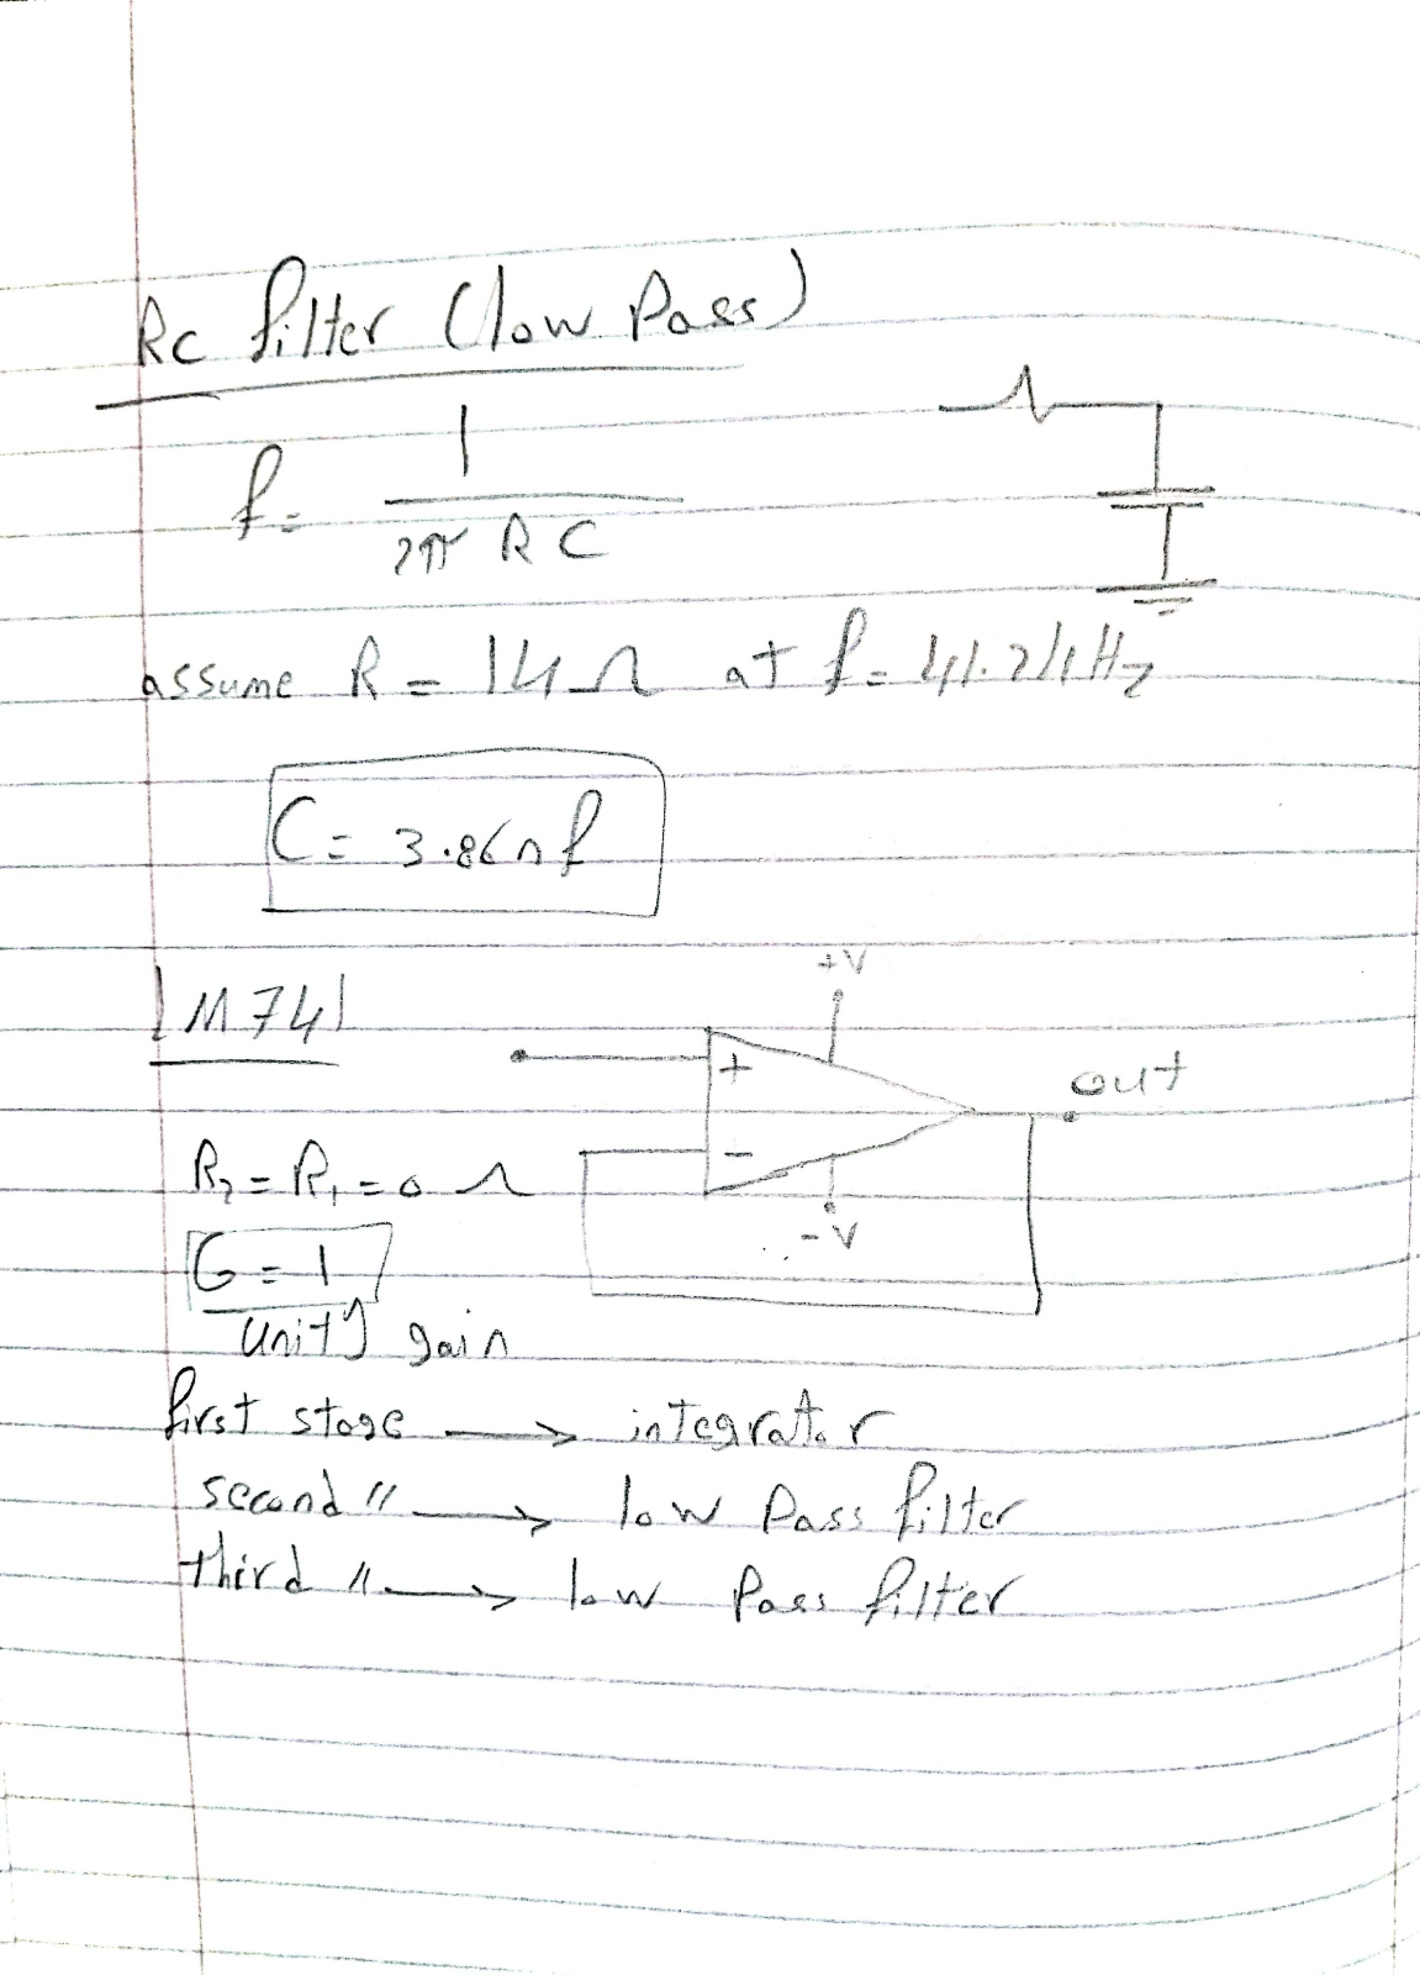 RC filter (low Pass)
f = 1
2π RC
assume R = 1kΩ at f = 41.2kHz
C = 3.86nf
+V
LM741
+
out
R₂ = R₁ = 0 Ω
-
-V
G = 1
unity gain
first stage → integrator
second " → low Pass filter
third " → low Pass filter